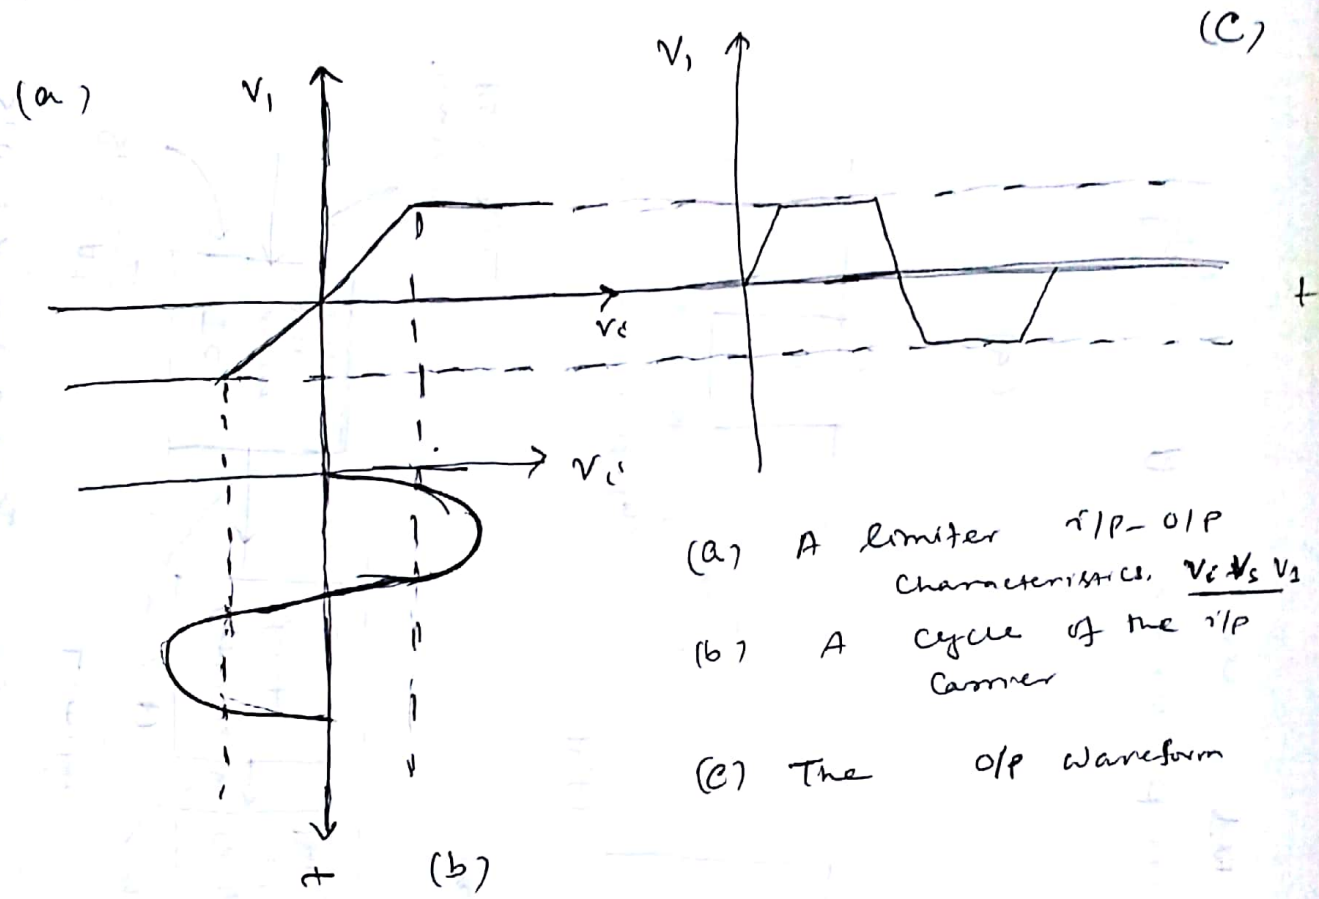 (a)
V1
Vi
(C)
V1
t
Vi
t
(b)
(a) A limiter i/p - o/p
characteristics, Vi Vs V1
(b) A cycle of the i/p
Carrier
(C) The o/p waveform